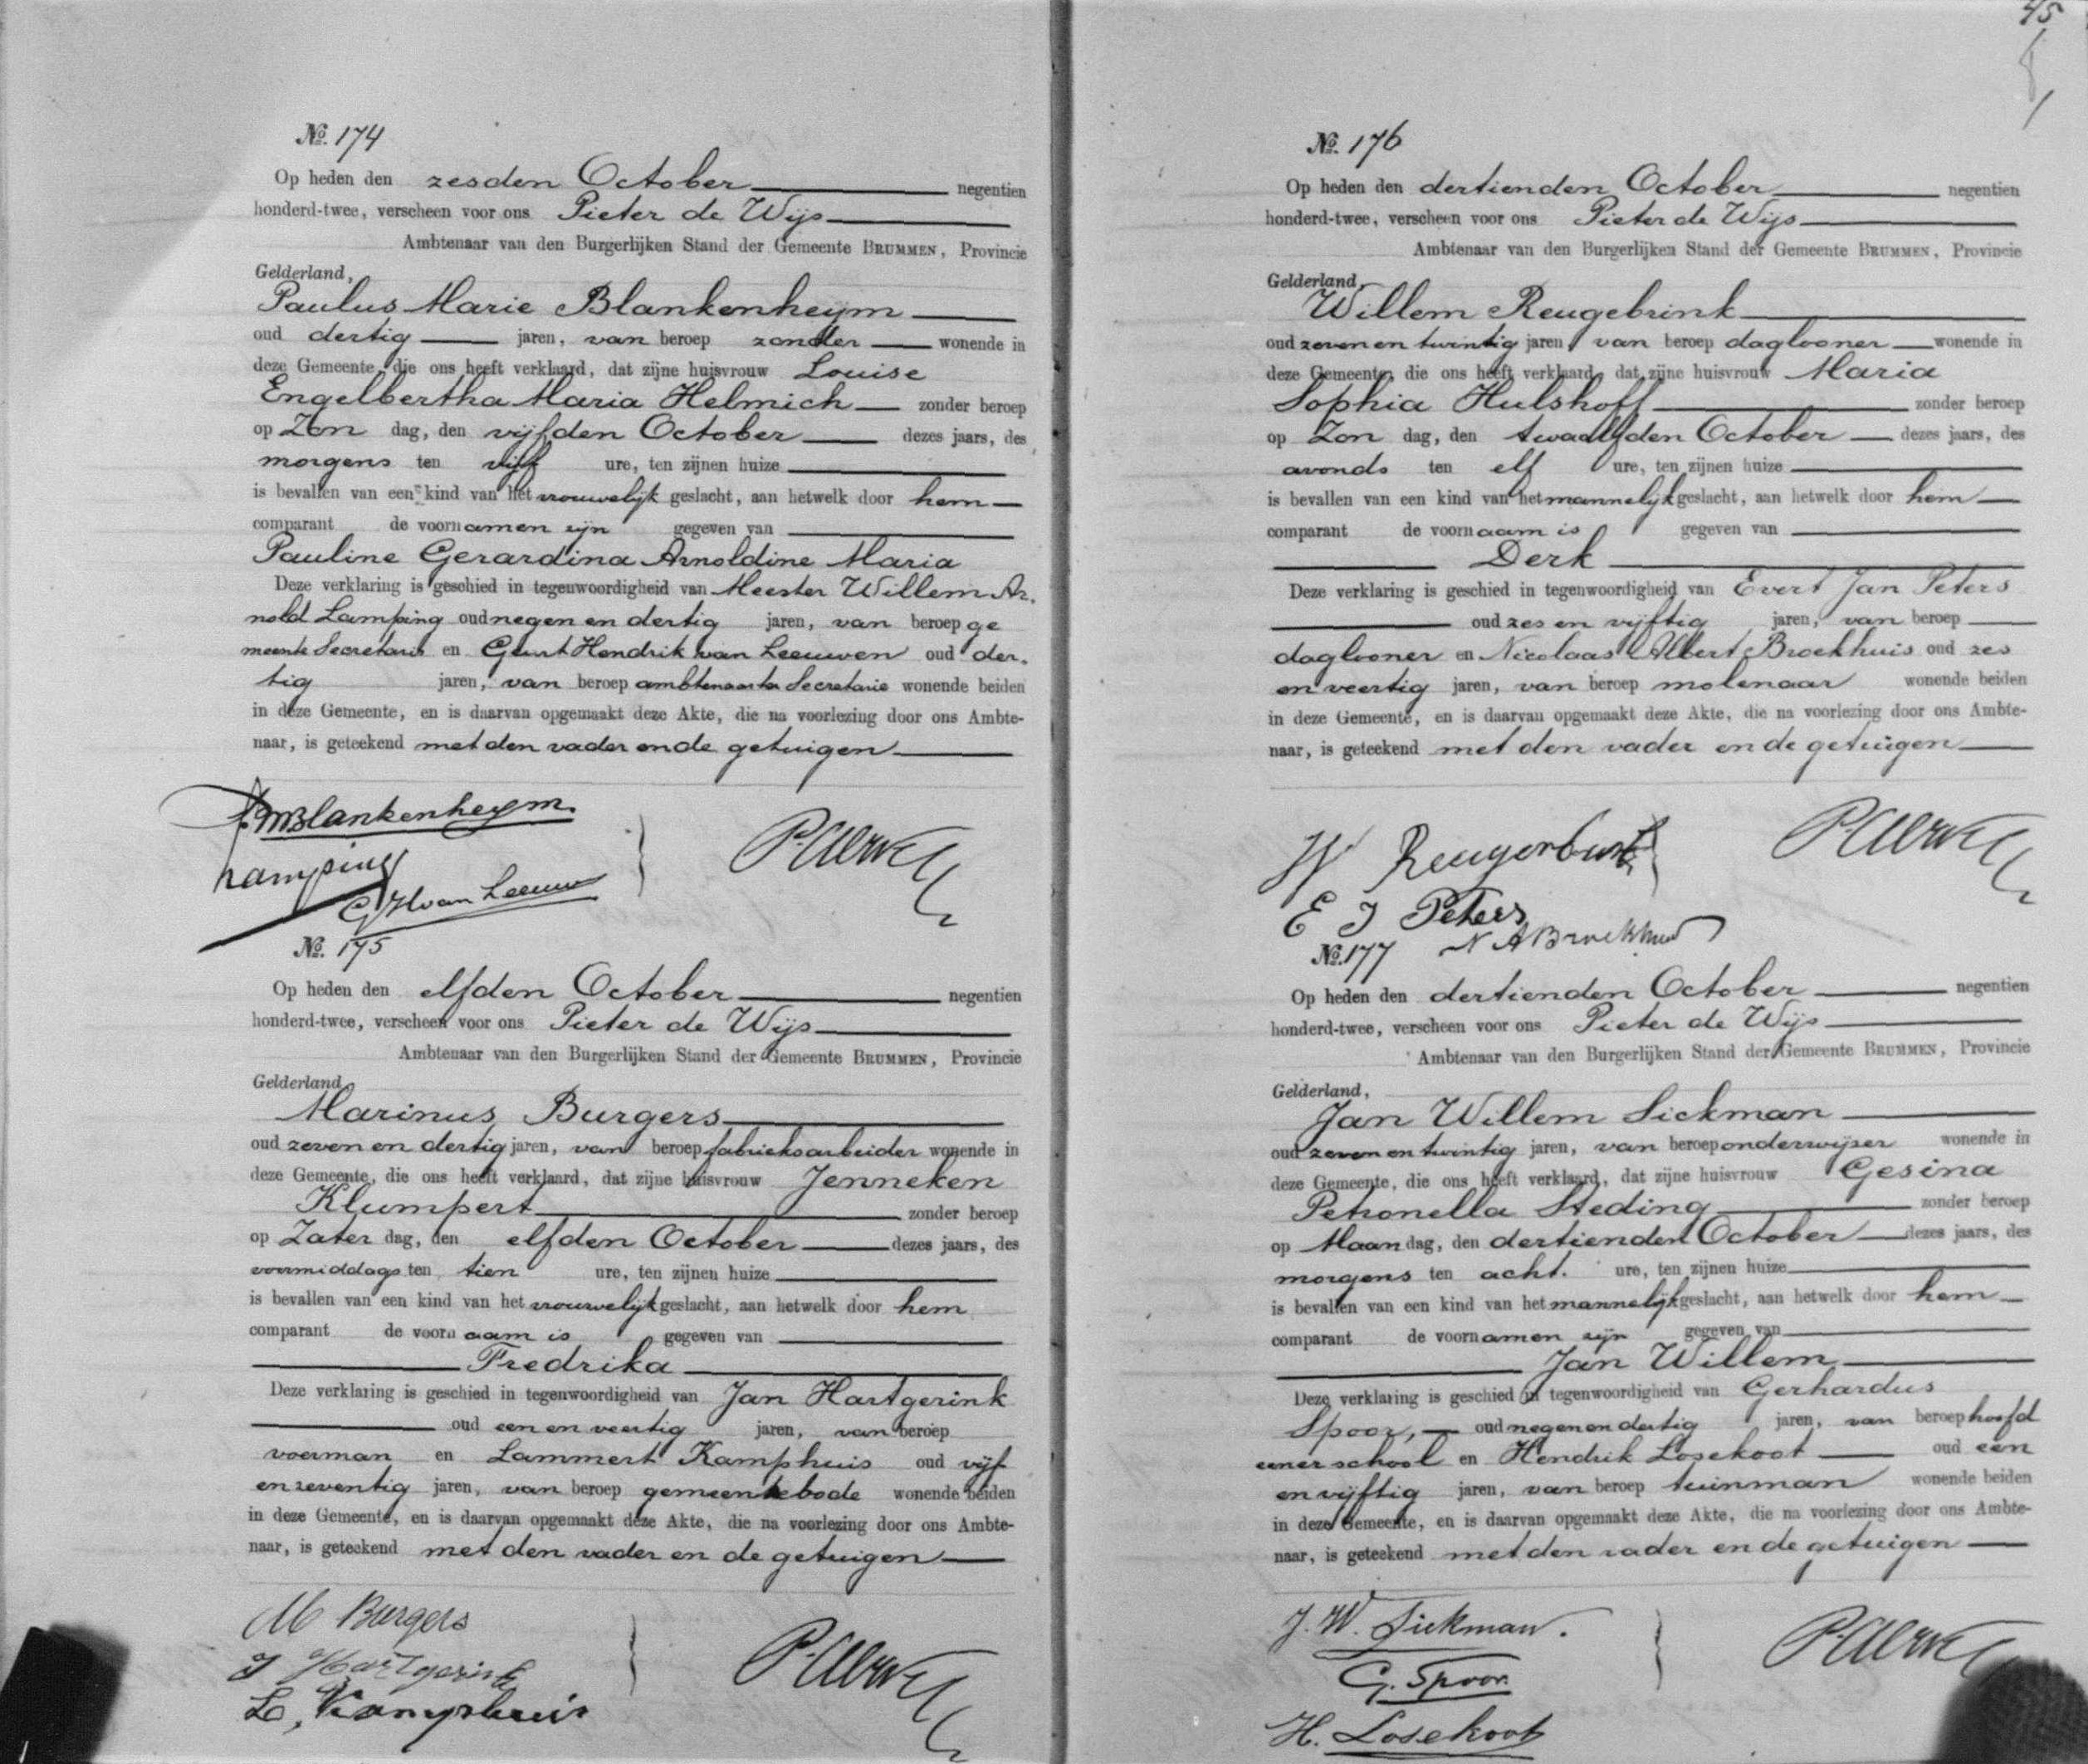 No. 174
Op heden den zesden October negentien
honderd-twee, verscheen voor ons Pieter de Wijs
Ambtenaar van den Burgerlijken Stand der Gemeente BRUMMEN, Provincie
Gelderland,
Paulus Marie Blankenheym
oud dertig jaren, van beroep zonder wonende in
deze Gemeente, die ons heeft verklaard, dat zijne huisvrouw Louise
Engelbertha Maria Helmich zonder beroep
op Zon dag, den vijfden October dezes jaars, des
morgens ten vijf ure, ten zijnen huize
is bevallen van een kind van het vrouwelijk geslacht, aan hetwelk door hem
comparant de voornamen zijn gegeven van
Pauline Gerardina Arnoldine Maria
Deze verklaring is geschied in tegenwoordigheid van Meester Willem Ar,
nold Lamping oud negen en dertig jaren, van beroep ge
meente Secretaris en Geurt Hendrik van Leeuwen oud der,
tig jaren, van beroep ambtenaar ter Secretarie wonende beiden
in deze Gemeente, en is daarvan opgemaakt deze Akte, die na voorlezing door ons Ambte-
naar, is geteekend met den vader en de getuigen
P.M. Blankenheym.
Lamping
G H van Leeuw
No. 175
Op heden den elfden October negentien
honderd-twee, verscheen voor ons Pieter de Wijs
Ambtenaar van den Burgerlijken Stand der Gemeente BRUMMEN, Provincie
Gelderland,
Marinus Burgers
oud zeven en dertig jaren, van beroep fabrieksarbeider wonende in
deze Gemeente, die ons heeft verklaard, dat zijne huisvrouw Jenneken
Klumpert zonder beroep
op Zater dag, den elfden October dezes jaars, des
voormiddags ten tien ure, ten zijnen huize
is bevallen van een kind van het vrouwelijk geslacht, aan hetwelk door hem
comparant de voornaam is gegeven van
Fredrika
Deze verklaring is geschied in tegenwoordigheid van Jan Hartgerink
oud een en veertig jaren, van beroep
voerman en Lammert Kamphuis oud vijf
en zeventig jaren, van beroep gemeentebode wonende beiden
in deze Gemeente, en is daarvan opgemaakt deze Akte, die na voorlezing door ons Ambte-
naar, is geteekend met den vader en de getuigen
M Burgers
J Hartgerink
L, Kamphuis
45
No. 176
Op heden den dertienden October negentien
honderd-twee, verscheen voor ons Pieter de Wijs
Ambtenaar van den Burgerlijken Stand der Gemeente BRUMMEN, Provincie
Gelderland,
Willem Reugebrink
oud zeven en twintig jaren, van beroep daglooner wonende in
deze Gemeente, die ons heeft verklaard, dat zijne huisvrouw Maria
Sophia Hulshoff zonder beroep
op Zon dag, den twaalfden October dezes jaars, des
avonds ten elf ure, ten zijnen huize
is bevallen van een kind van het mannelijk geslacht, aan hetwelk door hem
comparant de voornaam is gegeven van
Derk
Deze verklaring is geschied in tegenwoordigheid van Evert Jan Peters
oud zes en vijftig jaren, van beroep
daglooner en Nicolaas Albert Broekhuis oud zes
en veertig jaren, van beroep molenaar wonende beiden
in deze Gemeente, en is daarvan opgemaakt deze Akte, die na voorlezing door ons Ambte-
naar, is geteekend met den vader en de getuigen
W
E J Peters
N A Broekhuis
No. 177
Op heden den dertienden October negentien
honderd-twee, verscheen voor ons Pieter de Wijs
Ambtenaar van den Burgerlijken Stand der Gemeente BRUMMEN, Provincie
Gelderland,
Jan Willem Siekman
oud zeven en twintig jaren, van beroep onderwijzer wonende in
deze Gemeente, die ons heeft verklaard, dat zijne huisvrouw Gesina
Petronella Steding zonder beroep
op Maan dag, den dertienden October dezes jaars, des
morgens ten acht. ure, ten zijnen huize
is bevallen van een kind van het mannelijk geslacht, aan hetwelk door hem
comparant de voornamen zijn gegeven van
Jan Willem
Deze verklaring is geschied in tegenwoordigheid van Gerhardus
Spoor, oud negen en dertig jaren, van beroep hoofd
eener school en Hendrik Losekoot oud een
en vijftig jaren, van beroep tuinman wonende beiden
in deze Gemeente, en is daarvan opgemaakt deze Akte, die na voorlezing door ons Ambte-
naar, is geteekend met den vader en de getuigen
J. W. Siekman.
G. Spoor.
H. Losekoot